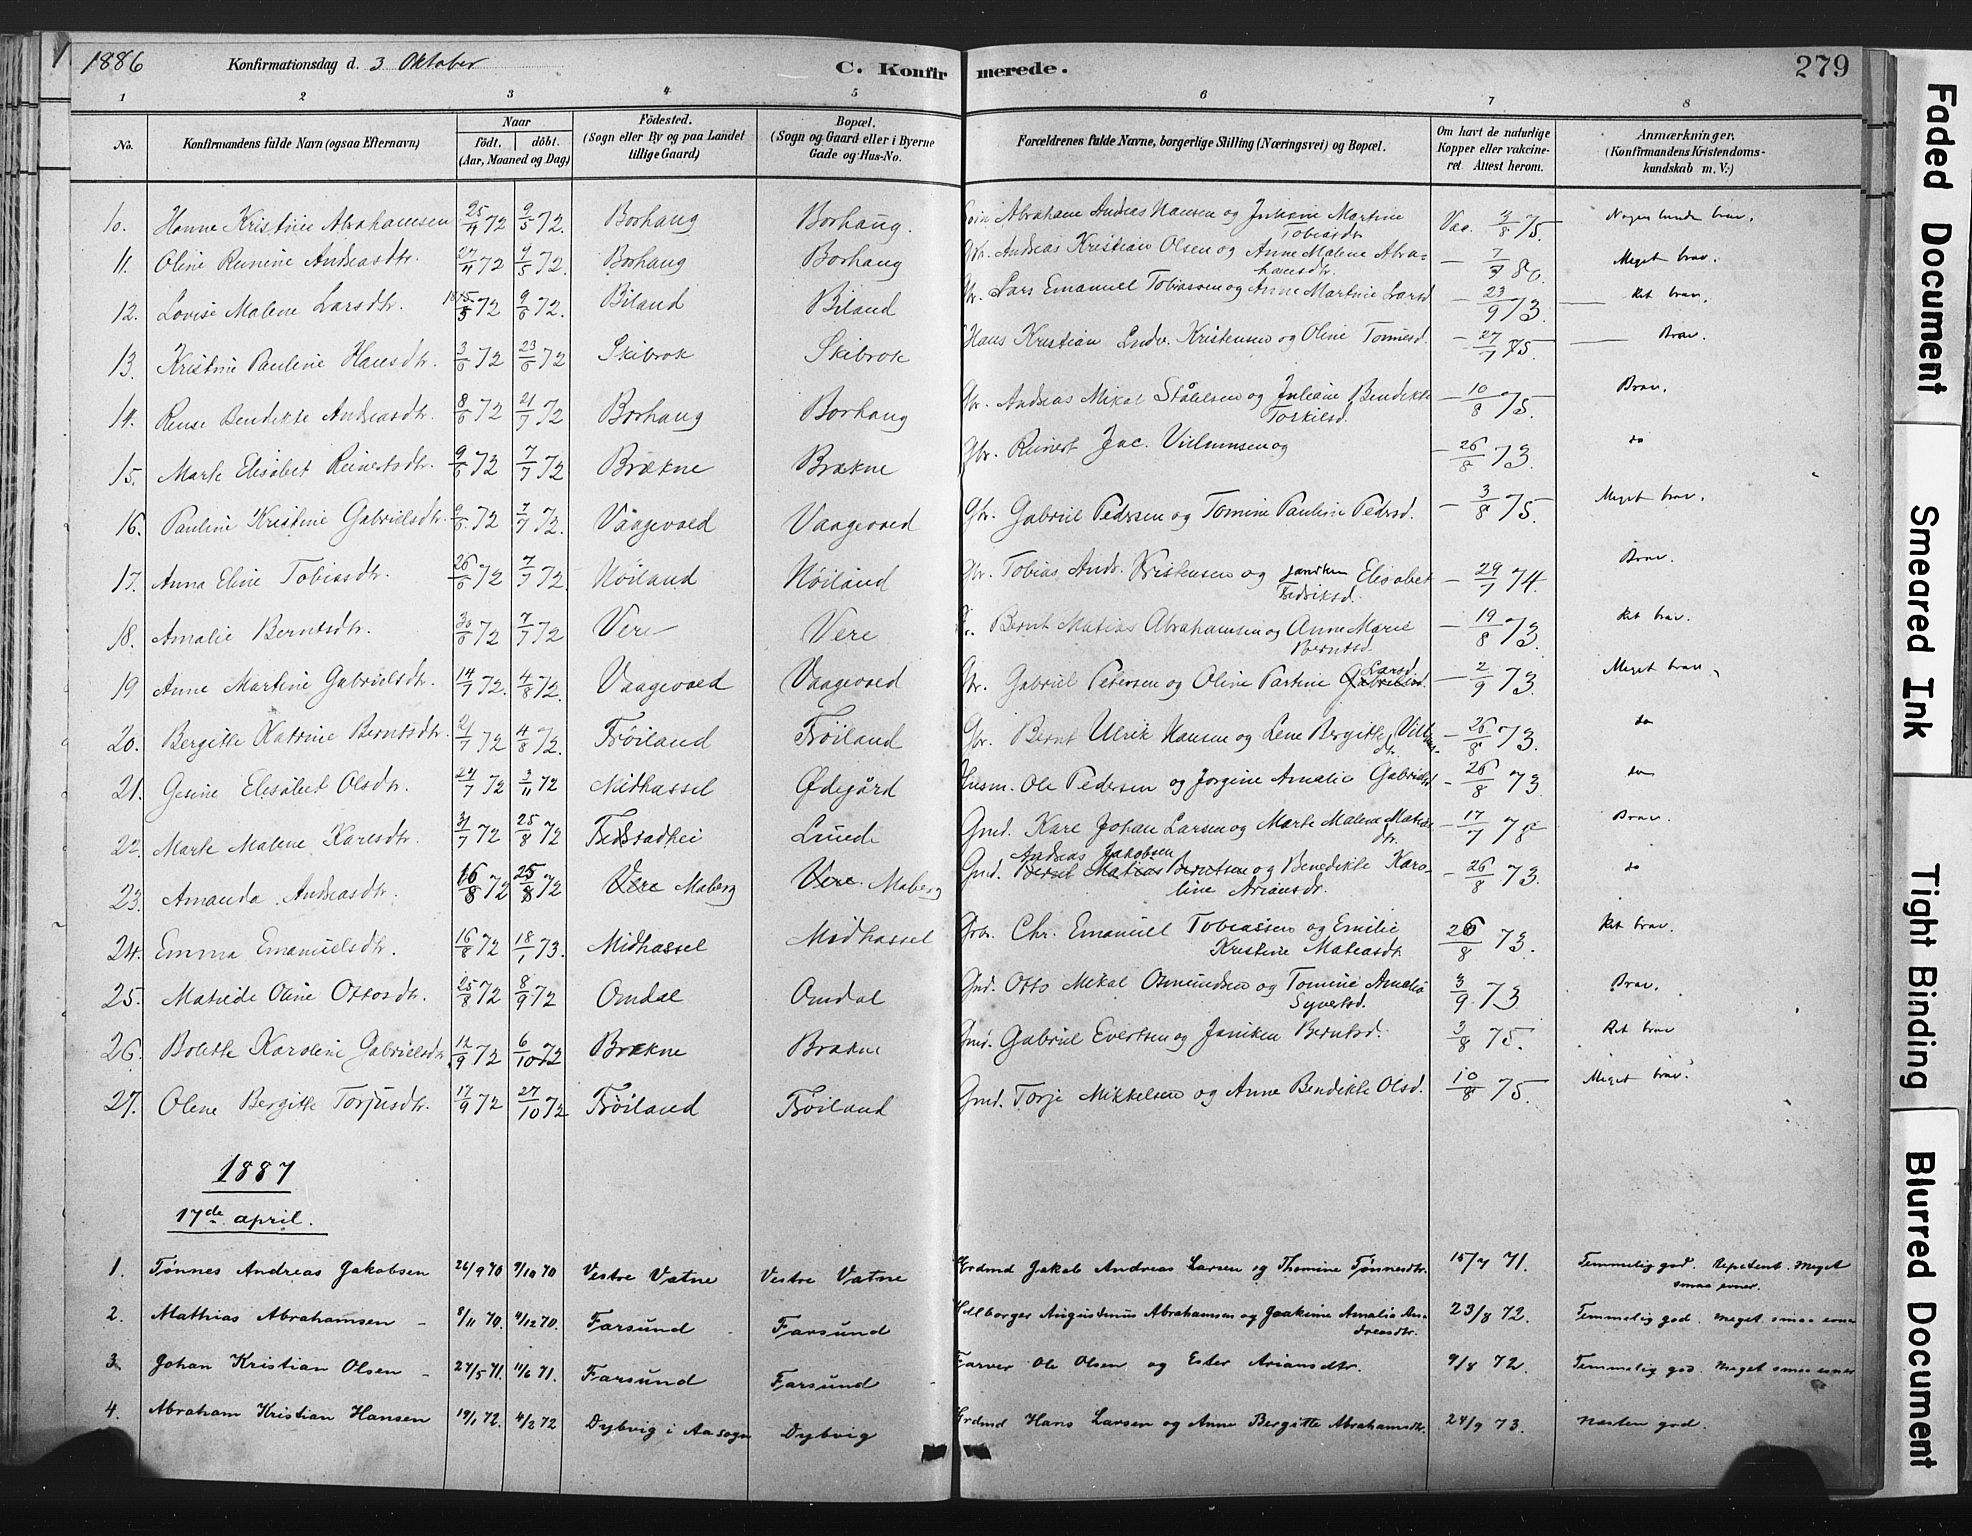 1886 Konfirmationsdag d. 3 Oktober C. Konfirmerede. 279
1 2 3 4 5 6 7 8
No. Konfirmandens fulde Navn (ogsaa Efternavn) Naar født. døbt. (Aar, Maaned og Dag) Fødested. (Sogn eller By og paa Landet tillige Gaard) Bopæl. (Sogn og Gaard eller i Byerne Gade og Hus-No. Forældrenes fulde Navne, borgerlige Stilling (Næringsvei) og Bopæl. Om havt de naturlige Kopper eller vakcineret Attest herom. Anmærkninger. (Konfirmandens Kristendomskundskab m. V.)
10. Hanne Kristine Abrahamsen 25/4 72 9/5 72. Borhaug Borhaug. Abraham Andreas Hansen og Juliane Martine Tobiasdtr Vac. 3/8 75. Nogenlunde brav.
11. Oline Reinine Andreasdtr. 27/4 72 9/5 72. Borhaug Borhaug Gbr. Andreas Kristian Olsen og Anne Malene Abrahamsdtr. – 7/7 80. Meget brav.
12. Lovise Malene Larsdtr. 15/5 72 9/6 72. Biland Biland Gbr. Lars Emanuel Tobiassen og Anne Martine Larsd – 23/9 73. Ret brav.
13. Kristine Pauline Hansdtr. 3/6 72 23/6 72 Skibrok Skibrok Hans Kristian Ludv. Kristensen og Oline Tønnesd. – 27/7 75. Brav.
14. Rense Bendikte Andreasdtr. 8/6 72 21/7 72 Borhaug Borhaug Gbr. Andreas Mikal Ståhlsen og Juliane Bendikte Torkilsd. – 10/8 75. Brav.
15. Marte Elisabet Reinertsdtr. 9/6 72 7/7 72 Brækne Brækne Gbr. Reinert Jac. Villumsen og – 26/8 73. do
16. Pauline Kristine Gabrielsdtr. 9/6 72 7/7 72. Vaagevold Vaagevold Gbr. Gabriel Pedersen og Tomine Pauline Pedersd. – 3/8 75. Meget brav.
17. Anna Eline Tobiasdtr. 26/6 72 7/7 72. Nöiland Nöiland Gbr. Tobias Andr. Kristensen og Janiken Elisabet Fredriksd. – 29/7 74. Brav.
18. Amalie Berntsdtr. 30/6 72 7/7 72 Vere Vere Bernt Matias Abrahamsen og Anne Marie Berntsd. – 19/8 73. Ret brav.
19 Anne Martine Gabrielsdtr. 14/7 72. 4/8 72. Vaagevold Vaagevold Gbr. Gabriel Petersen og Oline Partine Larsd. – 2/9 73. Meget brav.
20. Bergitte Katrine Berntsdtr. 21/7 72 4/8 72. Tröiland Tröiland Gbr. Bernt Ulrik Hansen og Lene Bergitte Villumsdtr. – 26/8 73. do
21. Gesine Elisabet Olsdtr. 24/7 72 3/11 72 Midhassel Ødegård Husm. Ole Pedersen og Jorgine Amalie Gabrielsd – 26/8 73. do
22. Marte Malene Karlsdtr. 31/7 72 25/8 72 Tjedstadhei Lunde Gmd. Karl Johan Larsen og Marte Malene Matiasdtr. – 17/7 78 Brav.
23. Amanda Andreasdtr. 16/8 72 25/8 72 Vere Maberg Vere. Maberg Gmd. Andreas Jakobsen Bernt Matias Berntsen og Benedikte Karoline Ariansdr. – 26/8 73. do
24. Emma Emanuelsdtr. 16/8 72 18/1 73. Midhassel Midhassel Gbr. Chr. Emanuel Tobiassen og Emilie Kristine Matiasdtr 26/8 73. Ret brav.
25. Matilde Oline Ottosdtr. 25/8 72 8/9 72 Omdal Omdal Gmd. Otto Mikal Osmundsen og Tomine Amalia Syvertsd. 3/9 73 Brav.
26. Bolette Karoline Gabrielsdtr 12/9 72 6/10 72 Brækne Brækne Gmd. Gabriel Evertsen og Janiken Berntsd. 3/8 75. Ret brav
27. Olene Bergitte Torjusdtr. 17/9 72 27/10 72 Tröiland Tröiland Gmd. Torje Mikkelsen og Anne Bendikte Olsd. 10/8 75. Meget brav.
1887
17de april.
1. Tønnes Andreas Jakobsen 26/9 70 9/10 70 Vestre Vatne Vestre Vatne Grdmd Jakob Andreas Larsen og Thomine Tønnesdtr. 15/7 71. Temmelig god. Repetent. Meget smaa evner.
2. Mathias Abrahamsen 8/11 70. 4/12 70. Farsund Farsund Hdlborger Augustinus Abrahamsen og Joakime Amalia Andreasdtr. 23/8 72. Temmelig god. Meget smaa evner
3. Johan Kristian Olsen 27/5 71. 11/6 71. Farsund Farsund Farver Ole Olsen og Ester Ariansdtr. 9/8 72. Temmelig god. Meget smaa evner
4. Abraham Kristian Hansen 19/1 72. 4/2 72 Dybvig i Aa sogn Dybvig Grdmd Hans Larsen og Anne Bergitte Abrahamsdtr. 24/9 73. Næsten god.
Faded Document
Smeared Ink
Tight Binding
Blurred Document